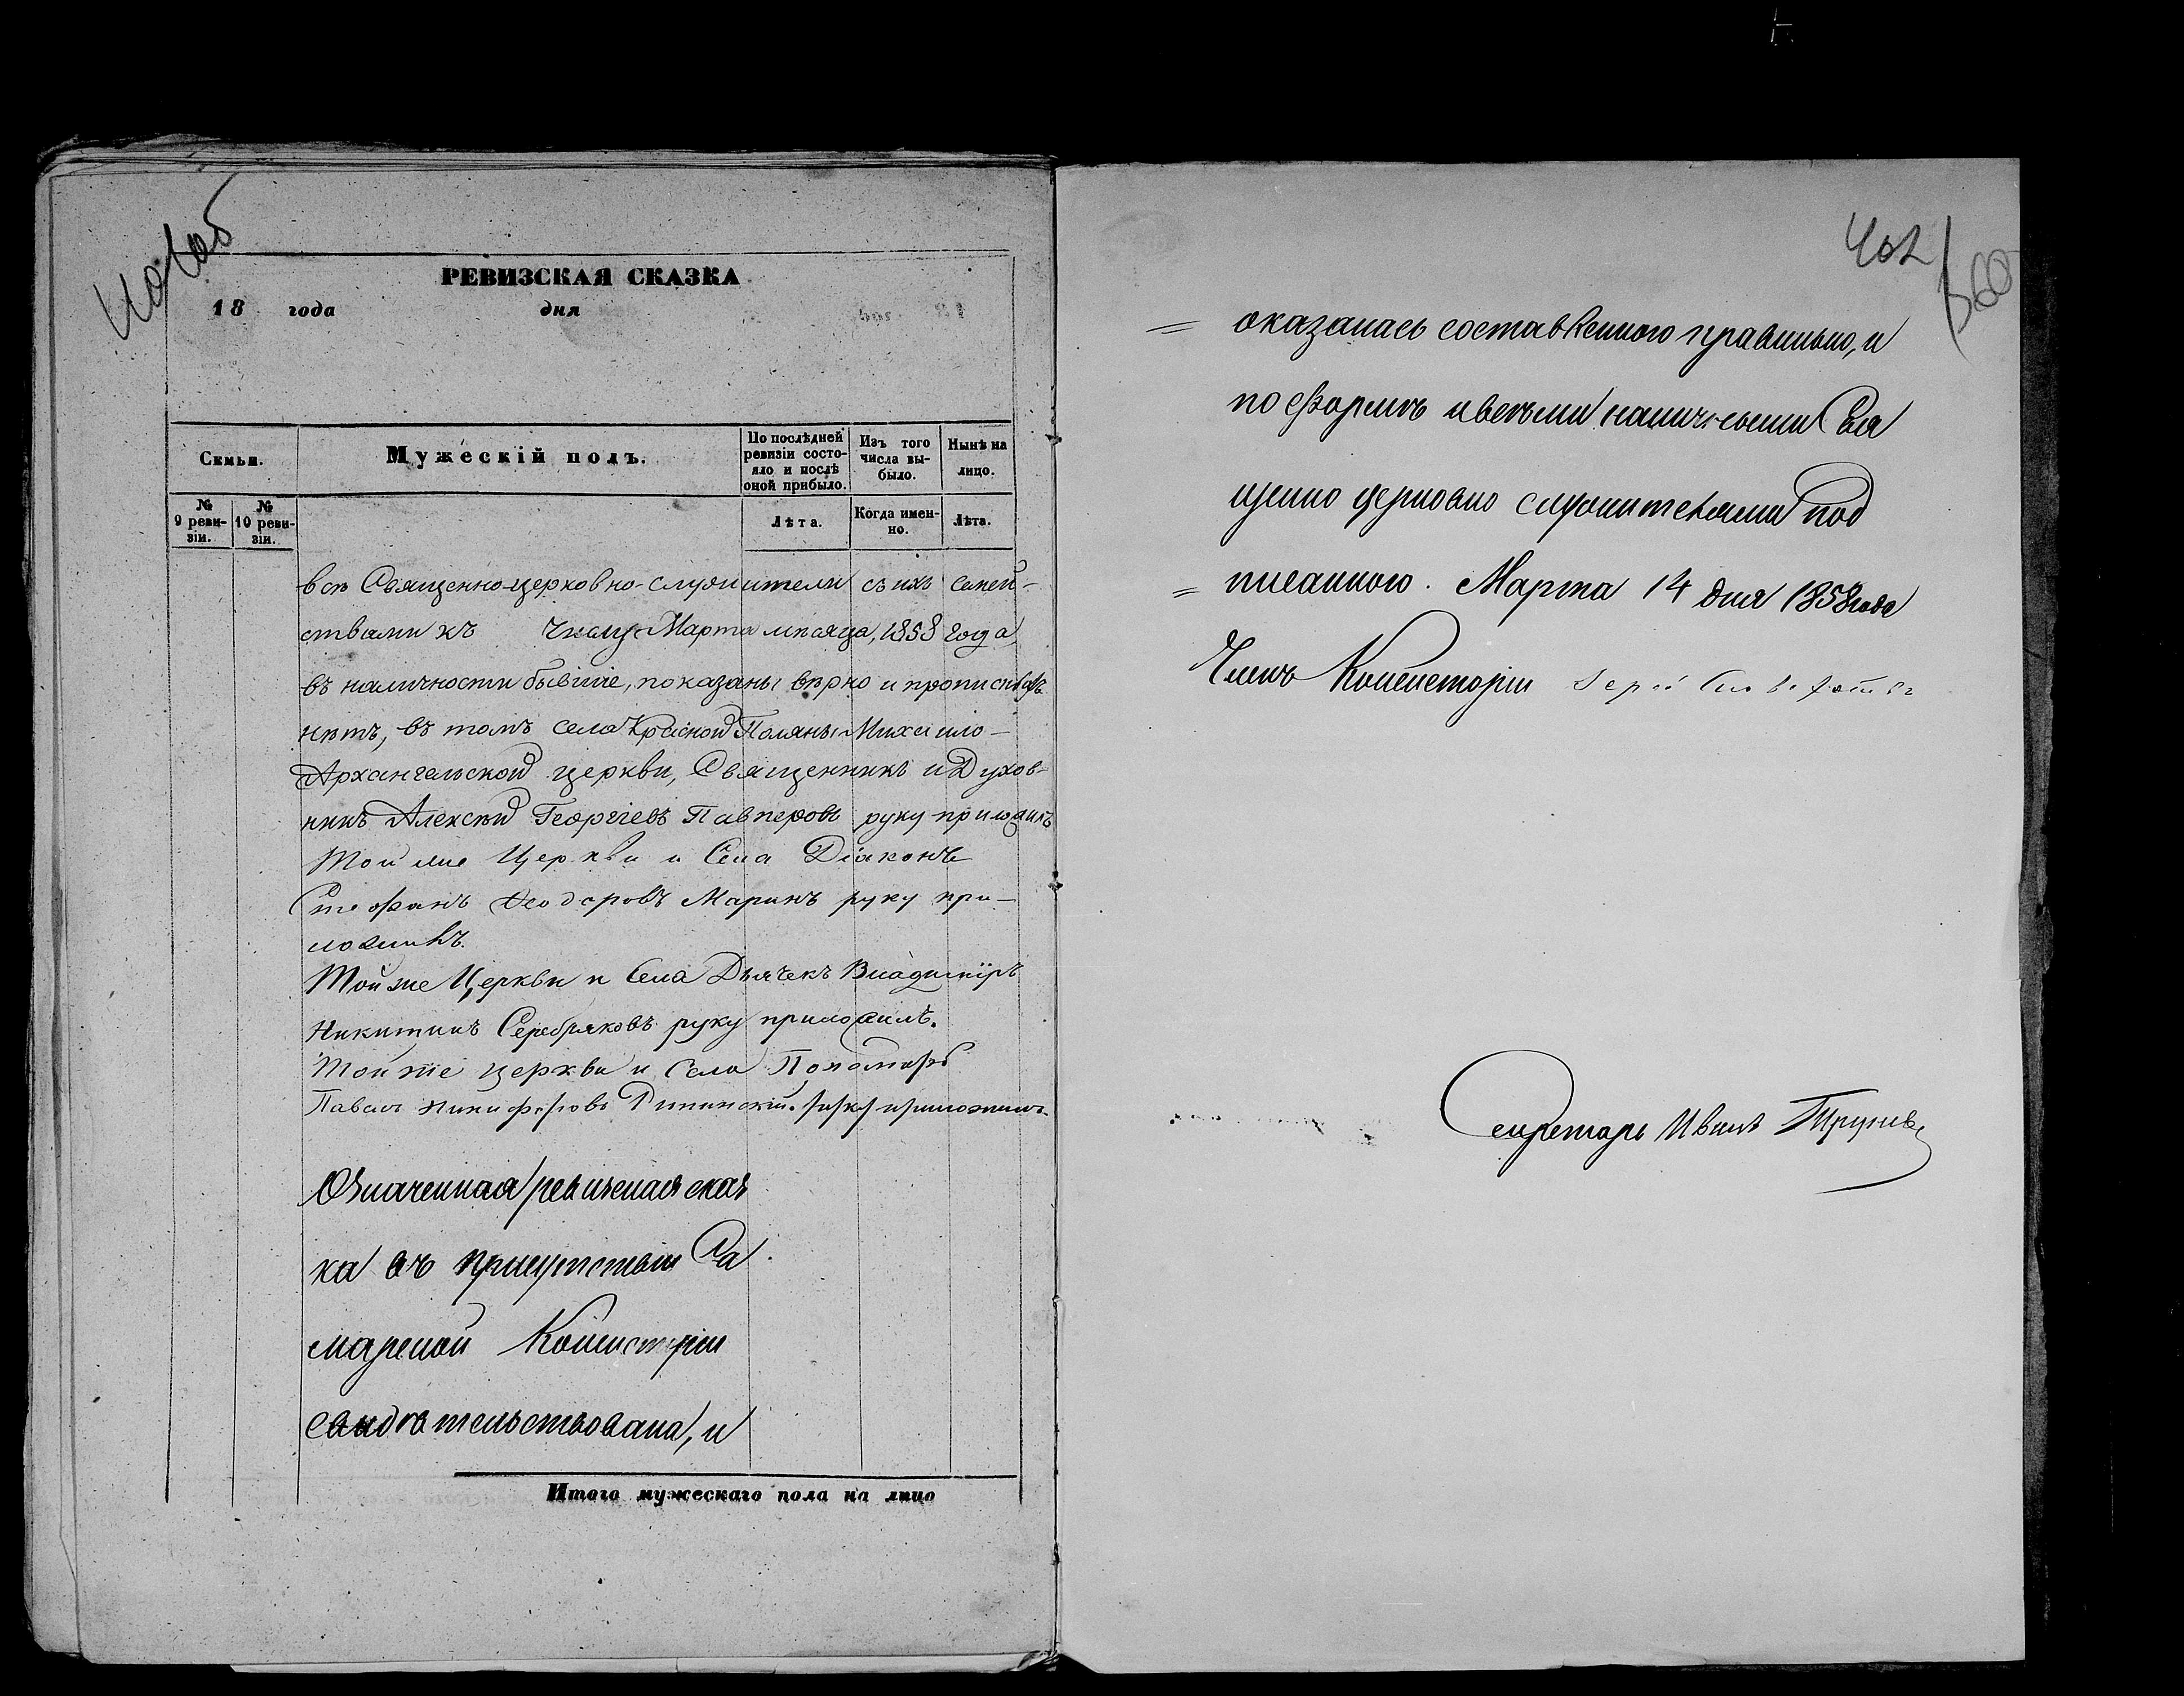 РЕВИЗСКАЯ СКАЗКА
18 года дня
Семьи.
Мужескій полъ.
По послѣдней ревизіи состояло и послѣ оной прибыло.
Изъ того числа выбыло.
Нынѣ на лицо.
№ 9 ревизіи.
№ 10 ревизіи.
Лѣта.
Когда именно.
Лѣта.
всѣ Священно-церковно-служители съ ихъ семей-
ствами къ числу Марта мѣсяца, 1858 года,
въ наличности бывшіе, показаны вѣрно и прописныхъ
нѣтъ, въ томъ села Красной Поляны Михаило-
Архангельской церкви, Священникъ и Духов-
никъ Алексѣй Георгіевъ Павперовъ руку приложилъ
Той же Церкви и Села Діаконъ
Стефанъ Феодоровъ Маринъ руку при-
ложилъ.
Той же Церкви и Села Дьячекъ Владиміръ
Никитинъ Серебряковъ руку приложилъ.
Той же церкви и Села Пономарь
Павелъ Никифоровъ руку приложилъ.
Означенная ревизская сказ
ка въ присутствіи Са
марской Консисторіи
свидѣтельствована, и
Итого мужескаго пола на лицо
402
360
= оказалась составленною правильно, и
по формѣ и всѣми наличными Свя
щенно церковно служителями под
= писанною. Марта 14 дня 1858 года
Членъ Консисторіи
Секретарь Иванъ